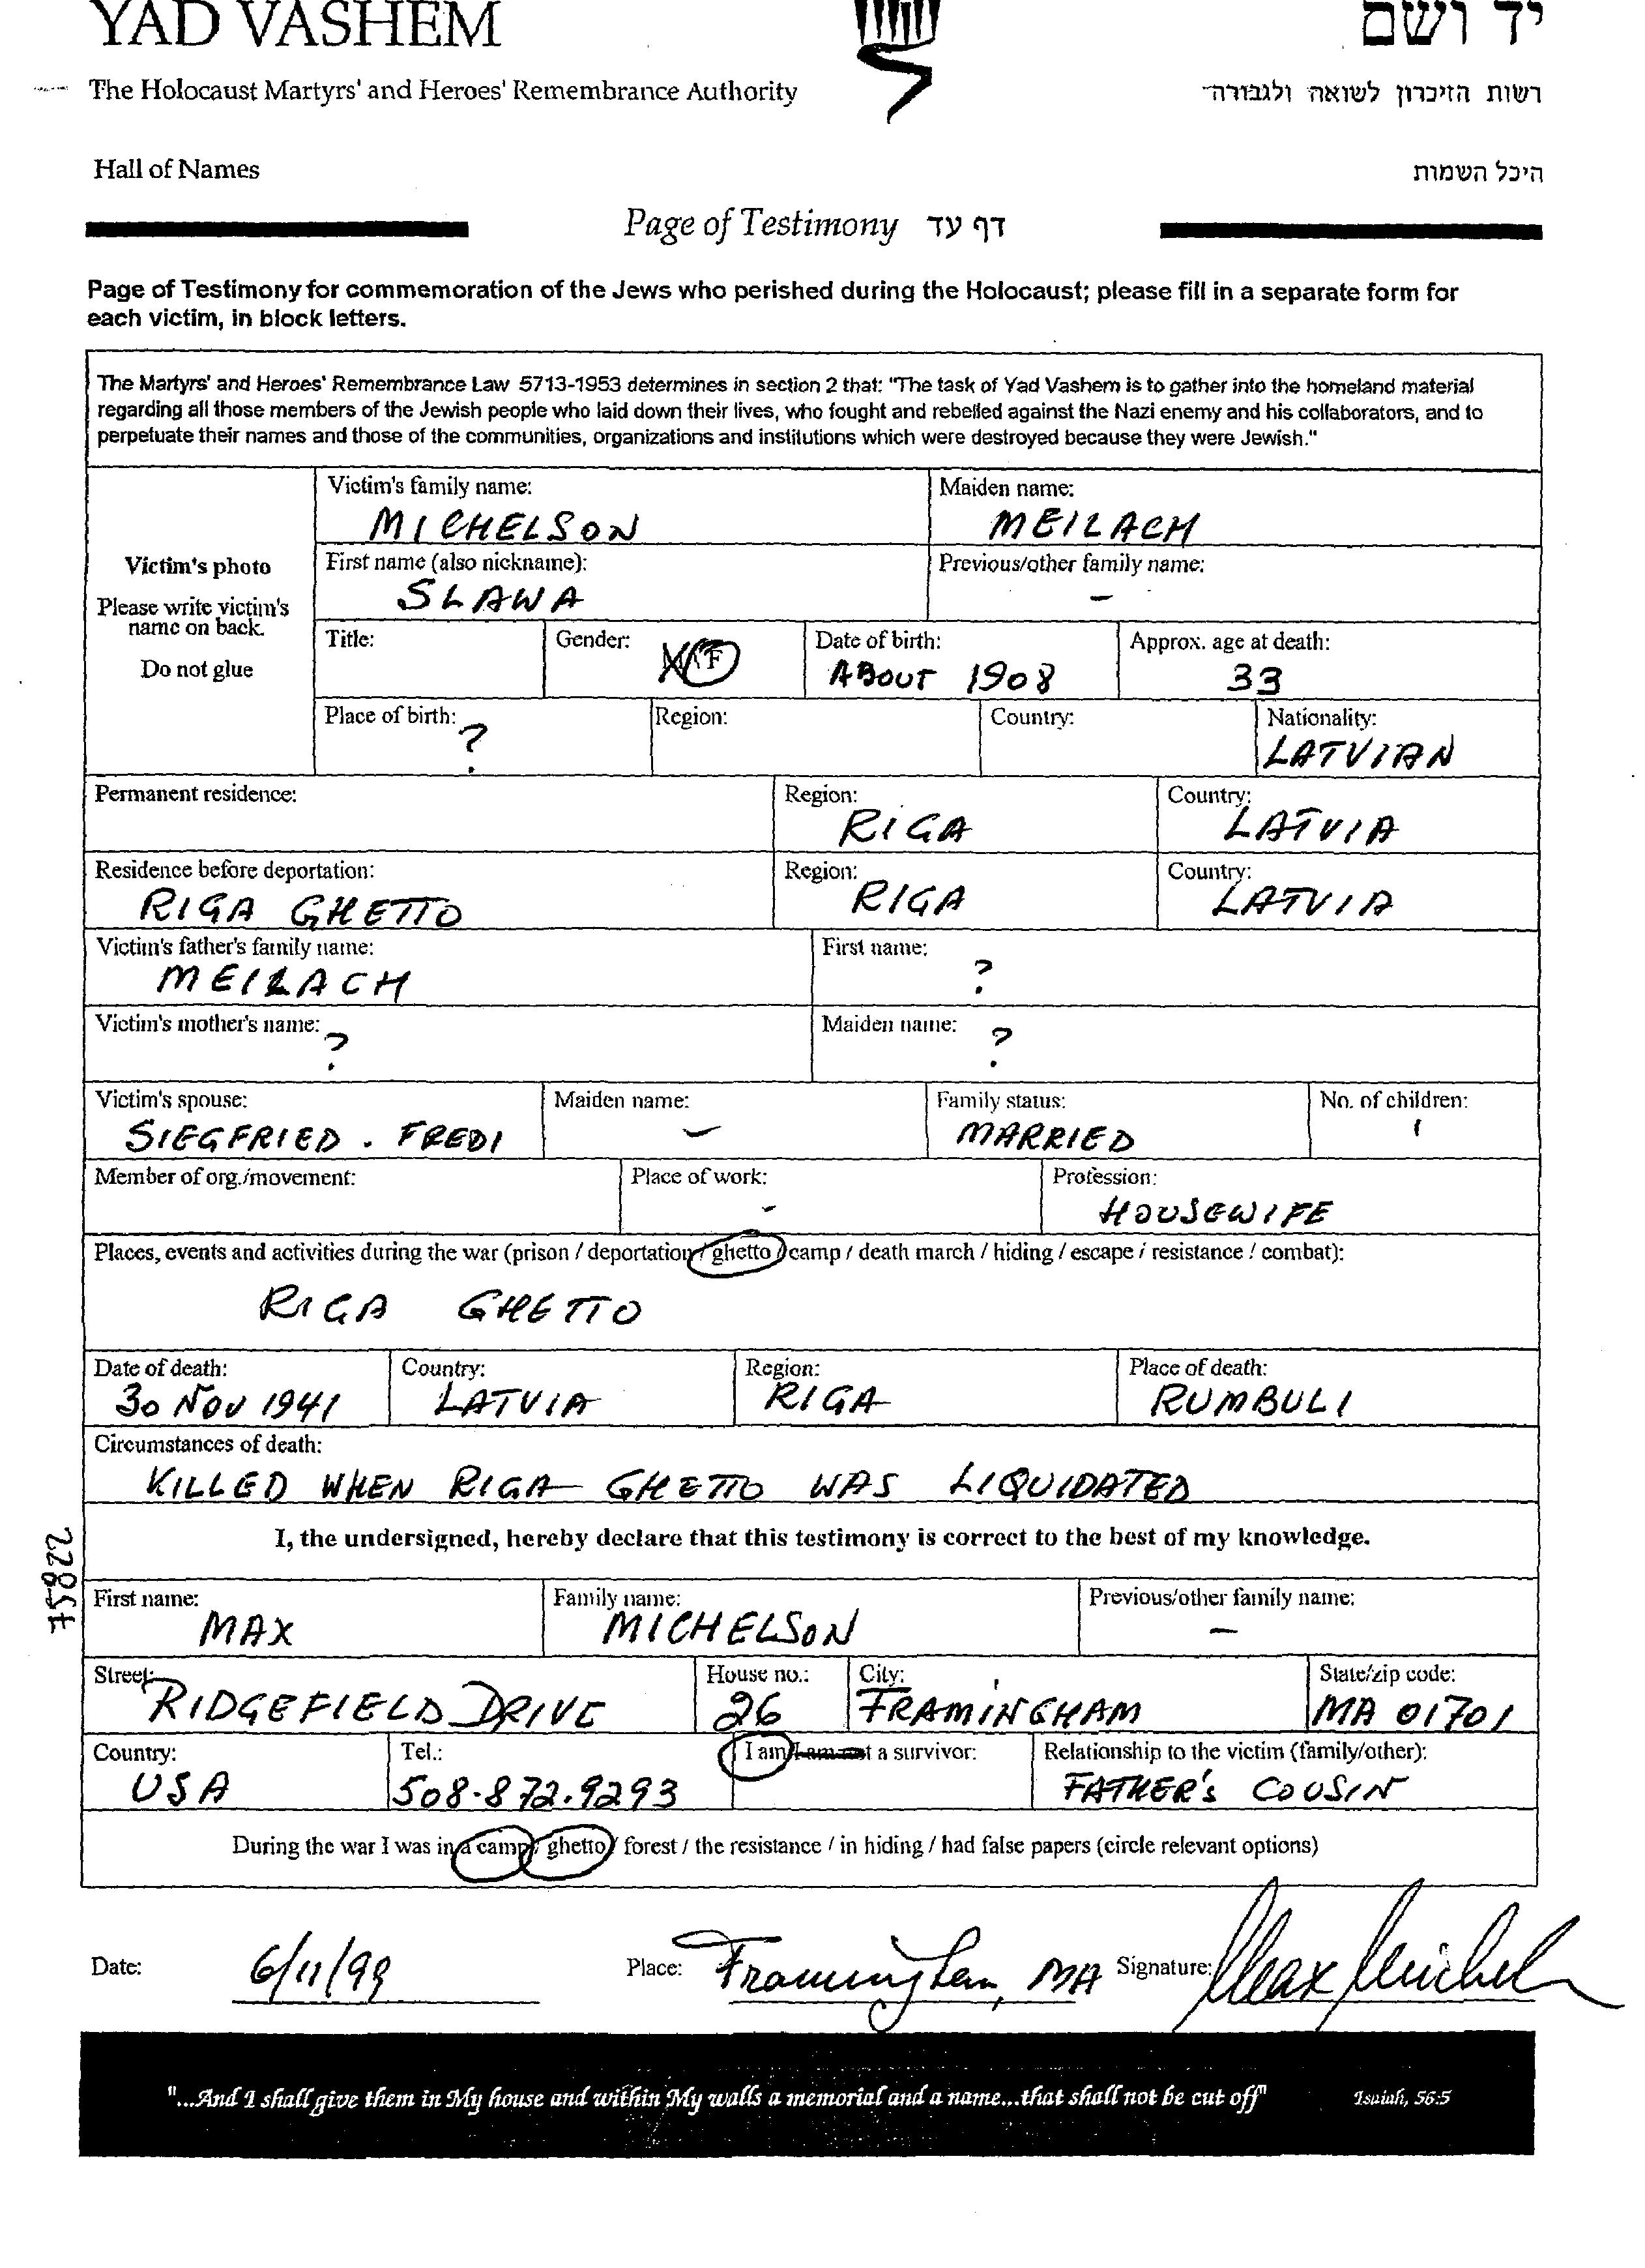 YAD VASHEM
יד ושם
The Holocaust Martyrs' and Heroes' Remembrance Authority
רשות הזיכרון לשואה ולגבורה
Hall of Names
היכל השמות
Page of Testimony דף עד
Page of Testimony for commemoration of the Jews who perished during the Holocaust; please fill in a separate form for
each victim, in block letters.
The Martyrs' and Heroes' Remembrance Law 5713-1953 determines in section 2 that: "The task of Yad Vashem is to gather into the homeland material
regarding all those members of the Jewish people who laid down their lives, who fought and rebelled against the Nazi enemy and his collaborators, and to
perpetuate their names and those of the communities, organizations and institutions which were destroyed because they were Jewish."
Victim's photo
Please write victim's
name on back.
Do not glue
Victim's family name: Maiden name:
MICHELSON MEILACH
First name (also nickname): Previous/other family name:
SLAWA –
Title: Gender: M/F Date of birth: Approx. age at death:
ABOUT 1908 33
Place of birth: ? Region: Country: Nationality:
LATVIAN
Permanent residence: Region: Country:
RIGA LATVIA
Residence before deportation: Region: Country:
RIGA GHETTO RIGA LATVIA
Victim's father's family name: First name:
MEILACH ?
Victim's mother's name: ? Maiden name: ?
Victim's spouse: Maiden name: Family status: No. of children:
SIEGFRIED . FREDI – MARRIED 1
Member of org./movement: Place of work: Profession:
– HOUSEWIFE
Places, events and activities during the war (prison / deportation / ghetto / camp / death march / hiding / escape / resistance / combat):
RIGA GHETTO
Date of death: Country: Region: Place of death:
30 NOV 1941 LATVIA RIGA RUMBULI
Circumstances of death:
KILLED WHEN RIGA GHETTO WAS LIQUIDATED
I, the undersigned, hereby declare that this testimony is correct to the best of my knowledge.
First name: Family name: Previous/other family name:
MAX MICHELSON –
Street: House no.: City: State/zip code:
RIDGEFIELD DRIVE 26 FRAMINGHAM MA 01701
Country: Tel.: I am/I am not a survivor: Relationship to the victim (family/other):
USA 508.872.9293 FATHER'S COUSIN
During the war I was in a camp / ghetto / forest / the resistance / in hiding / had false papers (circle relevant options)
Date: 6/11/99 Place: Framingham, MA Signature: Max Michel
"...And I shall give them in My house and within My walls a memorial and a name...that shall not be cut off" Isaiah, 56:5